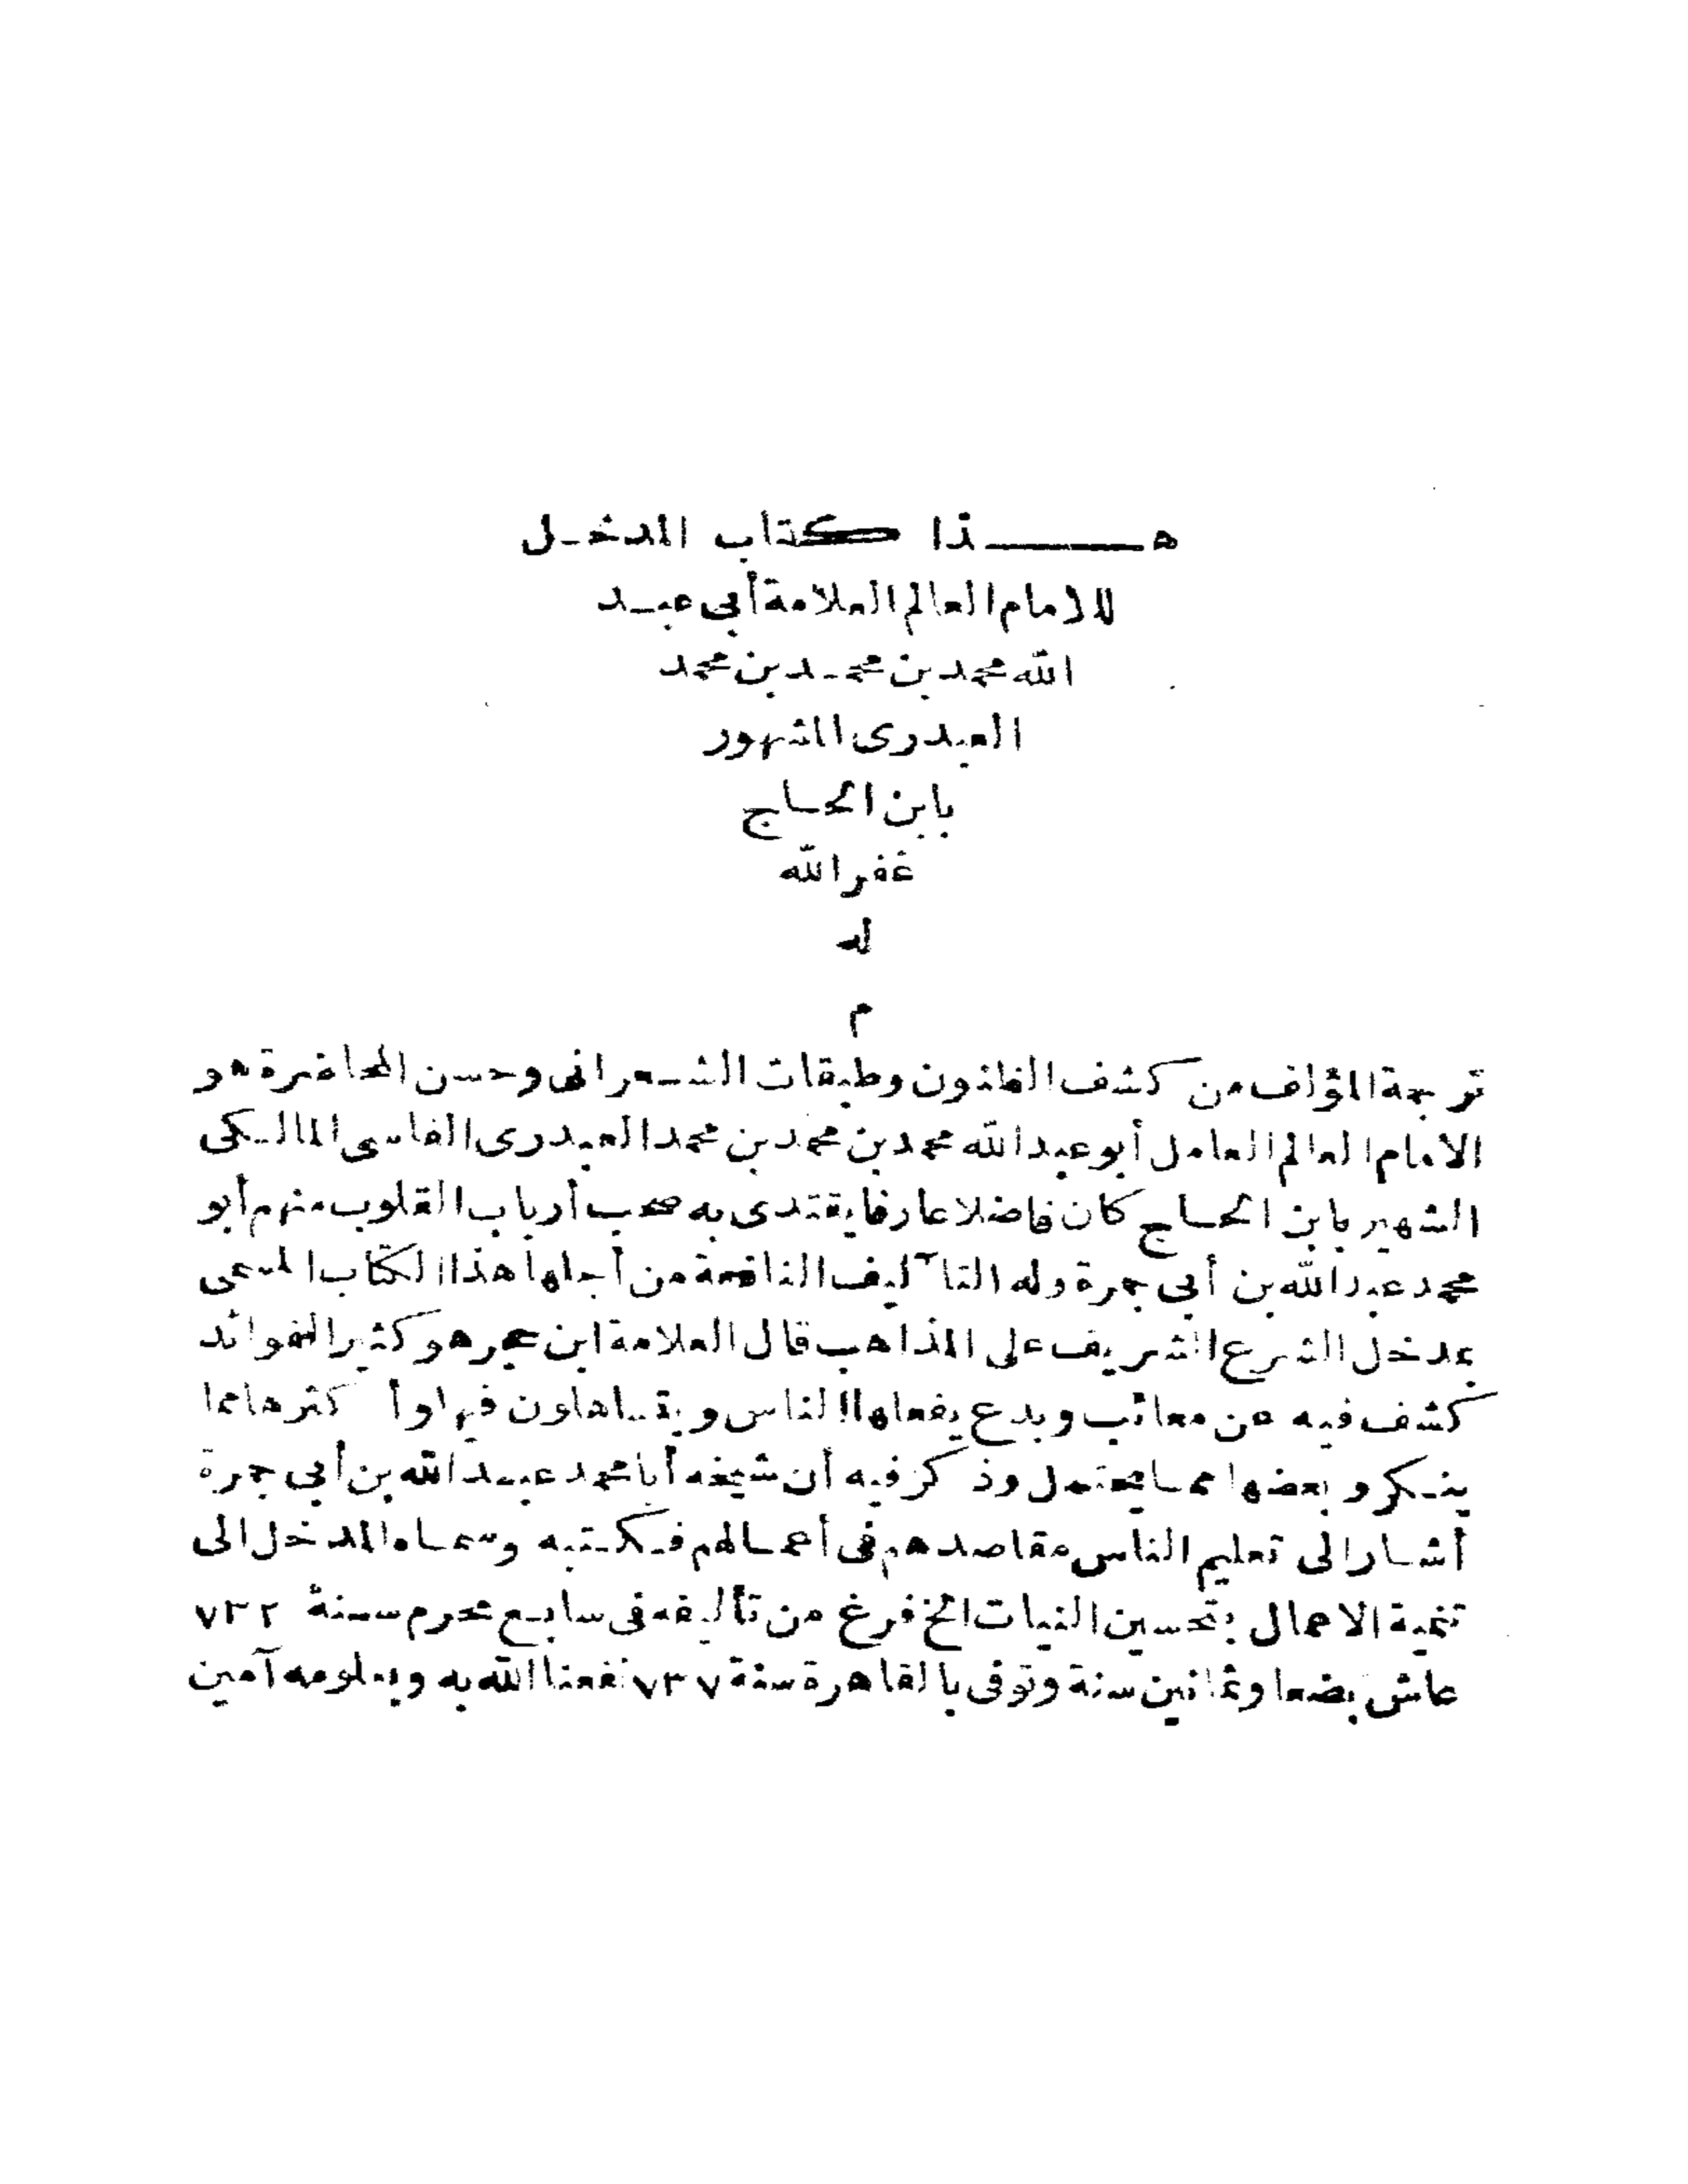 هذا كتاب المدخل
للامام العالم العلامة أبي عبد
الله محمد بن محمد بن محمد
العبدرى المشهور
بابن الحاج
غفر الله
له
م
ترجمة المؤلف من كشف الظنون وطبقات الشعرانى وحسن المحاضرة هو
الامام العالم العامل أبو عبد الله محمد بن محمد بن محمد العبدرى الفاسى المالكى
الشهير بابن الحاج كان فاضلا عارفا يقتدى به صحب أرباب القلوب منهم أبو
محمد عبد الله بن أبي جمرة وله التآليف النافعة من أجلها هذا الكتاب المسمى
بمدخل الشرع الشريف على المذاهب قال العلامة ابن حجر هو كثير الفوائد
كشف فيه عن معائب وبدع يفعلها الناس ويتساهلون فيها وأكثرها مما
ينكر وبعضها مما يحتمل وذكر فيه أن شيخه أبا محمد عبد الله بن أبي جمرة
أشار الى تعليم الناس مقاصدهم فى أعمالهم فكتبه وسماه المدخل الى
تنمية الاعمال بتحسين النيات الخ فرغ من تأليفه فى سابع محرم سنة ٧٣٢
عاش بضعا وثمانين سنة وتوفى بالقاهرة سنة ٧٣٧ نفعنا الله به وبعلومه آمين